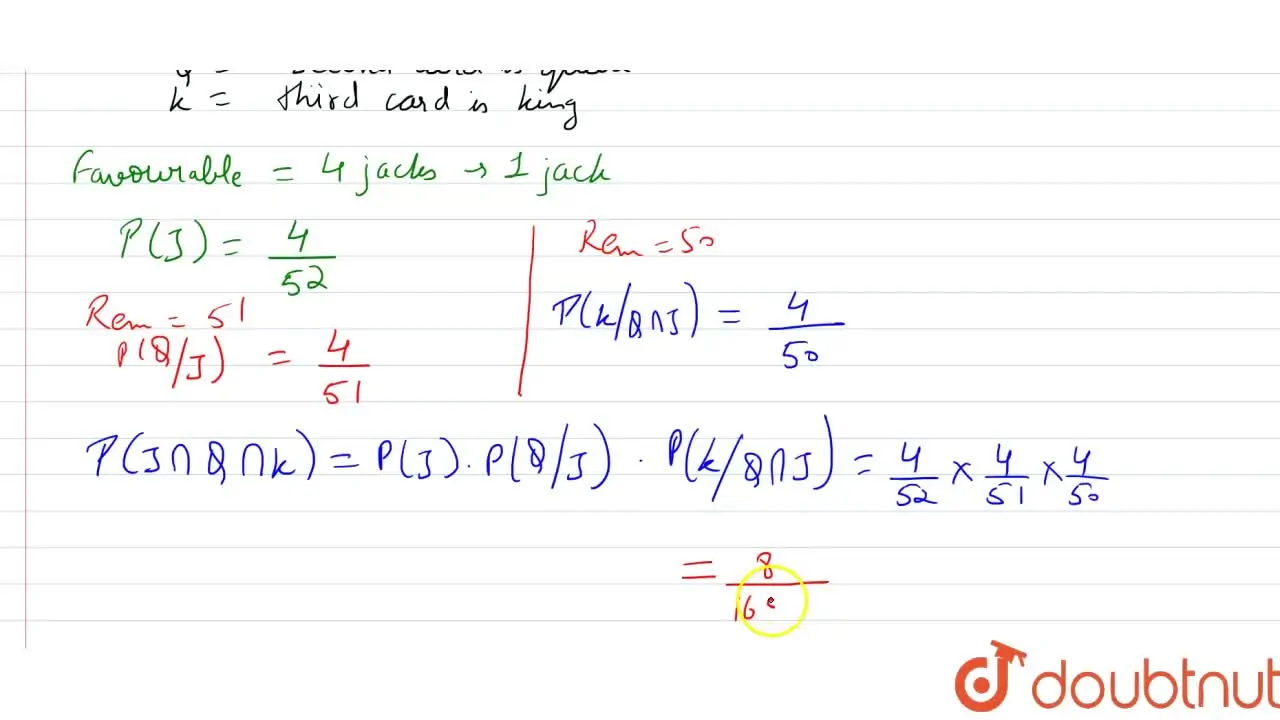 k = third card is king
Favourable = 4 jacks → 1 jack
P(J) = 4/52
Rem = 51
P(Q/J) = 4/51
Rem = 50
P(k/Q∩J) = 4/50
P(J∩Q∩k) = P(J) . P(Q/J) . P(k/Q∩J) = 4/52 × 4/51 × 4/50
= 8/16
doubtnut